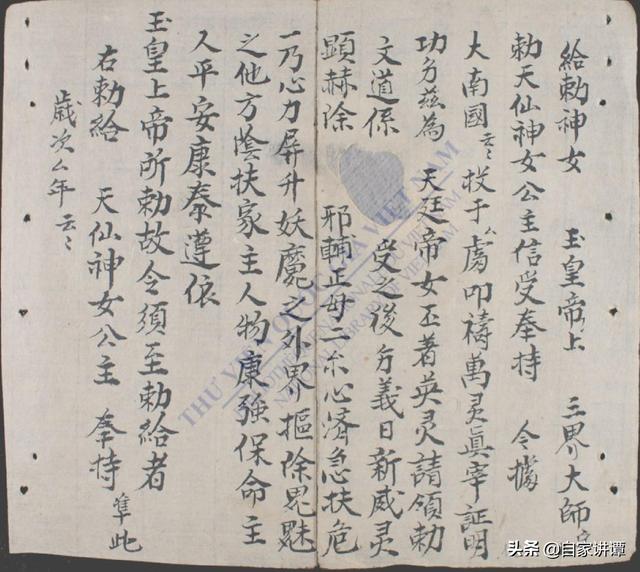 給勅神女 玉皇帝上 三界大師
勅天仙神女公主信受奉持 今據
大南國云〻投于厶處叩禱萬灵眞宰証明
功夯茲為 天廷帝女丕著英灵請領勅
文道係 受之後夯義日新威灵
顕赫除 邪輔正毋二尔心済急扶危
一乃心力屏升妖魔之外界摳除鬼魅
之他方蔭扶家主人物康強保命主
人平安康泰遵依
玉皇上帝所勅故令須至勅給者
右勅給 天仙神女公主 奉持
歲次厶年云〻 準此
THƯ VIỆN QUỐC GIA VIỆT NAM
NATIONAL LIBRARY OF VIETNAM
头条 @自家讲谭